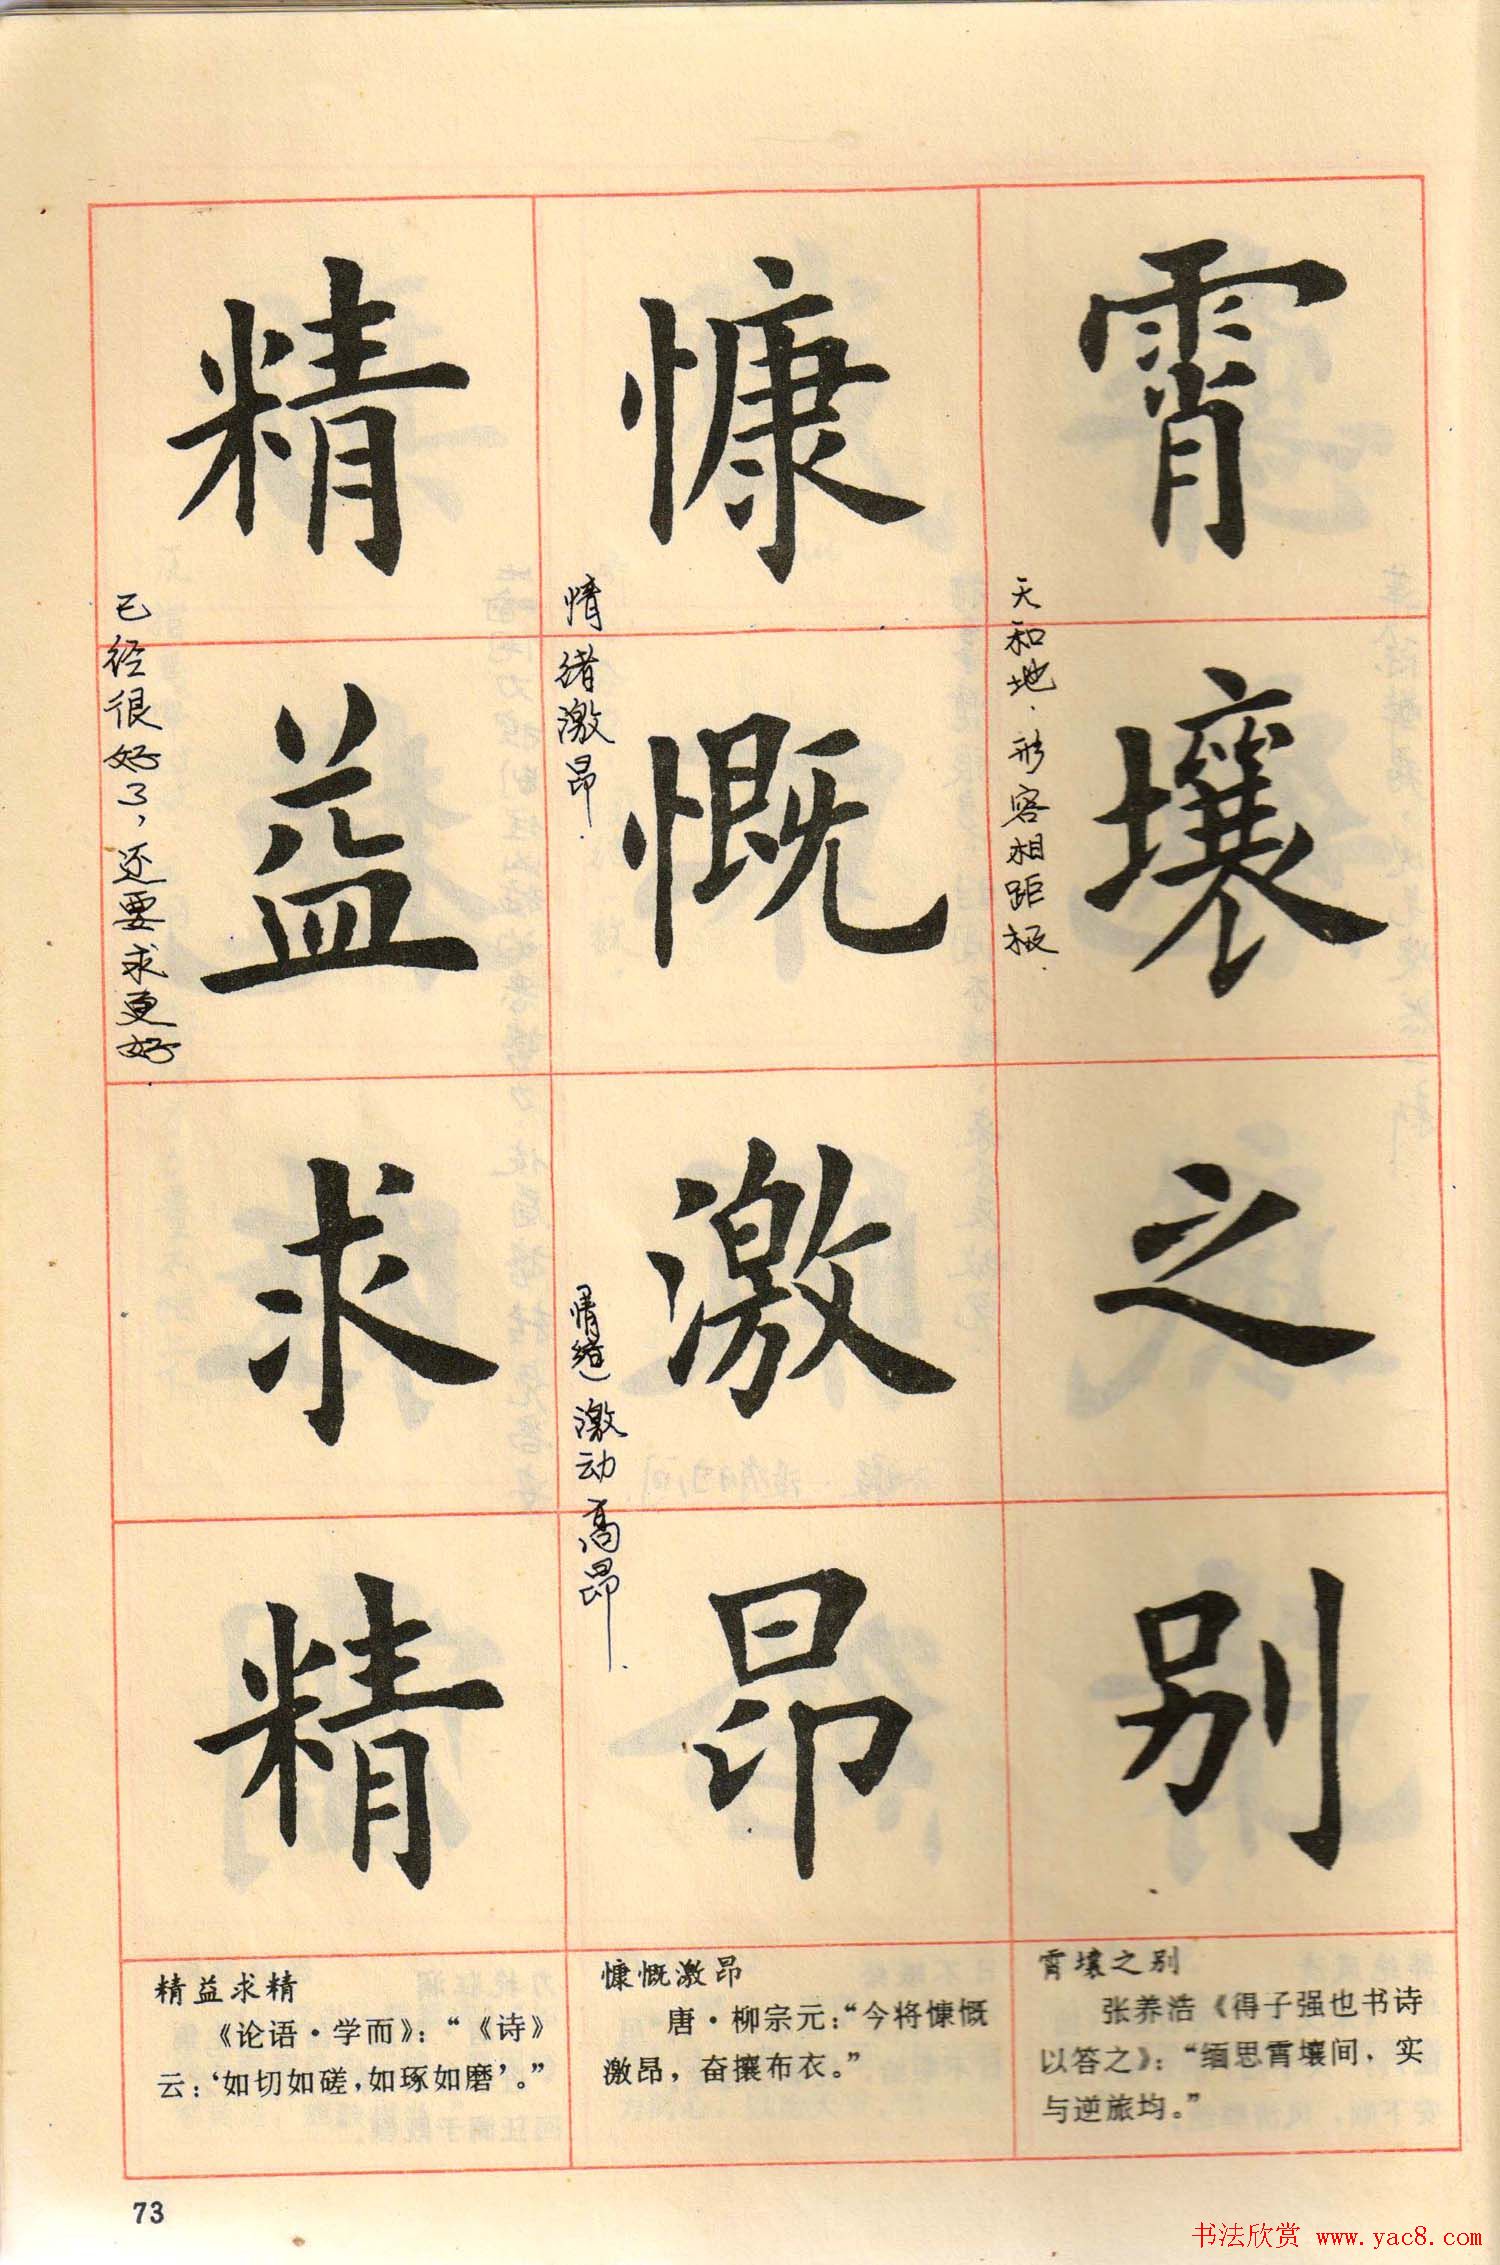 霄壤之别
天和地.形容相距极.
慷慨激昂
情绪激昂.
(情绪)激动高昂.
精益求精
已经很好了,还要求更好.
霄壤之别
张养浩《得子强也书诗
以答之》：“缅思霄壤间，实
与逆旅均。”
慷慨激昂
唐·柳宗元：“今将慷慨
激昂，奋攘布衣。”
精益求精
《论语·学而》：“《诗》
云：‘如切如磋，如琢如磨’。”
73
书法欣赏 www.yac8.com